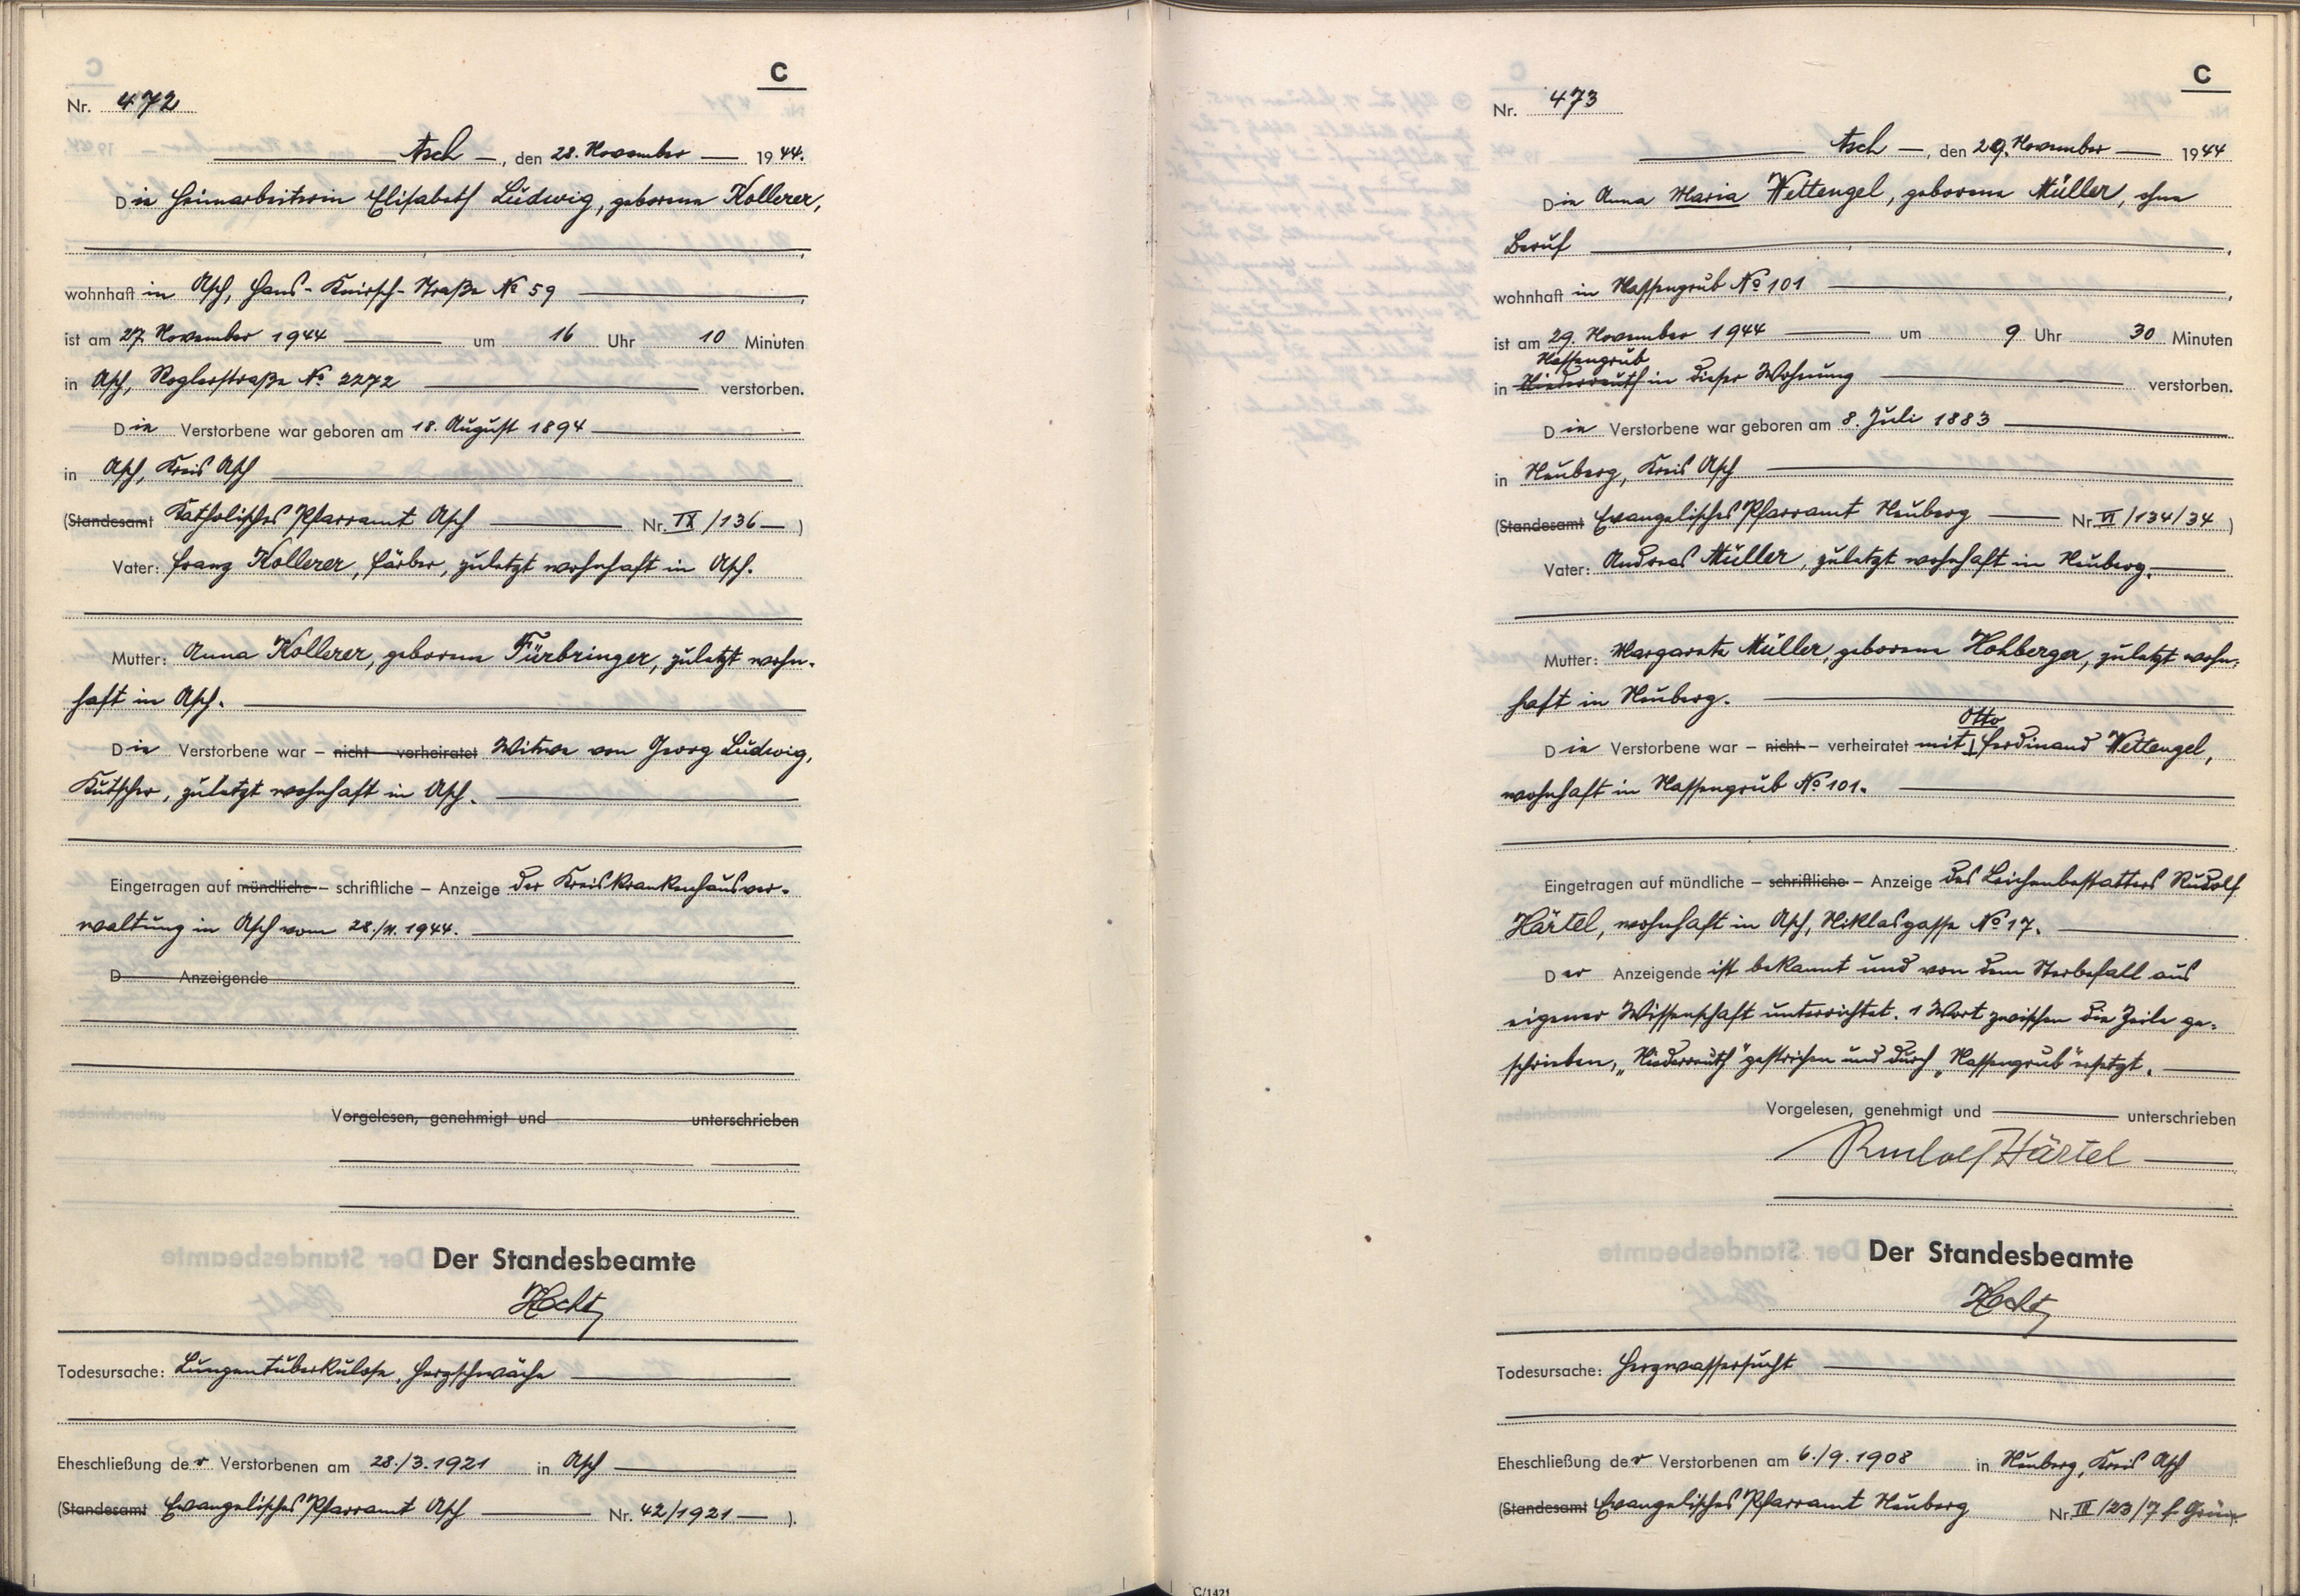 C
Nr. 472
Asch —, den 28. November — 1944.
Die Heimarbeiterin Elisabeth Ludwig, geborene Kollerer,
wohnhaft in Asch, Hans-Knirsch-Straße No 59
ist am 27. November 1944 um 16 Uhr 10 Minuten
in Asch, Roglerstraße No 2272 verstorben.
Die Verstorbene war geboren am 18. August 1894
in Asch, Kreis Asch
(Standesamt Katholisches Pfarramt Asch Nr. IX/136 —)
Vater: Franz Kollerer, Färber, zuletzt wohnhaft in Asch.
Mutter: Anna Kollerer, geborene Fürbringer, zuletzt wohn-
haft in Asch.
Die Verstorbene war – nicht – verheiratet Witwe von Georg Ludwig,
Kutscher, zuletzt wohnhaft in Asch.
Eingetragen auf mündliche – schriftliche – Anzeige der Kreiskrankenhausver-
waltung in Asch vom 28./11.1944.
D Anzeigende
Vorgelesen, genehmigt und unterschrieben
Der Standesbeamte
Todesursache: Lungentuberkulose, Herzschwäche
Eheschließung der Verstorbenen am 28./3.1921 in Asch
(Standesamt Evangelisches Pfarramt Asch Nr. 42/1921 —).
C
Nr. 473
Asch —, den 29. November — 1944
Die Anna Maria Wettengel, geborene Müller, ohne
Beruf
wohnhaft in Nassengrub No 101
ist am 29. November 1944 um 9 Uhr 30 Minuten
Nassengrub
in Niederreuth in dieser Wohnung verstorben.
Die Verstorbene war geboren am 8. Juli 1883
in Neuberg, Kreis Asch
(Standesamt Evangelisches Pfarramt Neuberg Nr. VI/134/34)
Vater: Andreas Müller, zuletzt wohnhaft in Neuberg.
Mutter: Margareta Müller, geborene Hohberger, zuletzt wohn-
haft in Neuberg.
Otto
Die Verstorbene war – nicht – verheiratet mit Ferdinand Wettengel,
wohnhaft in Nassengrub No 101.
Eingetragen auf mündliche – schriftliche – Anzeige des Leichenbestatters Rudolf
Härtel, wohnhaft in Asch, Niklasgasse No 17.
Der Anzeigende ist bekannt und von dem Sterbefall aus
eigener Wissenschaft unterrichtet. 1 Wort zwischen die Zeile ge-
schrieben, „Niederreuth" gestrichen und durch „Nassengrub" ersetzt.
Vorgelesen, genehmigt und unterschrieben
Rudolf Härtel
Der Standesbeamte
Todesursache: Herzwassersucht
Eheschließung der Verstorbenen am 6./9.1908 in Neuberg, Kreis Asch
(Standesamt Evangelisches Pfarramt Neuberg Nr. III/23/7 f. Grün).
C/1421